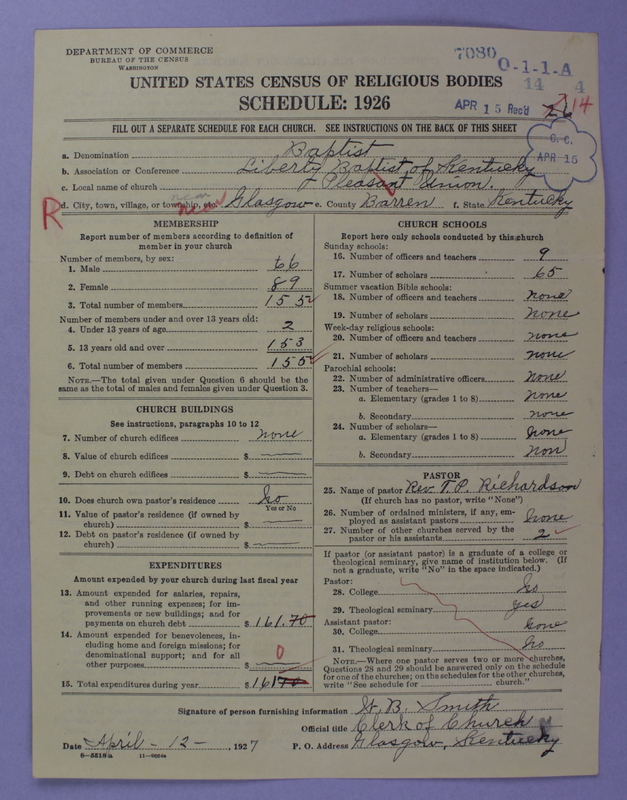 DEPARTMENT OF COMMERCE
BUREAU OF THE CENSUS
WASHINGTON
7080
O-1-1-A
14 4
UNITED STATES CENSUS OF RELIGIOUS BODIES
SCHEDULE: 1926
APR 15 Rec'd
14
FILL OUT A SEPARATE SCHEDULE FOR EACH CHURCH. SEE INSTRUCTIONS ON THE BACK OF THIS SHEET
C. C.
APR 15
a. Denomination Baptist
b. Association or Conference Liberty Baptist of Kentucky
c. Local name of church Pleasant Union.
R
d. City, town, village, or township, etc. near Glasgow e. County Barren f. State Kentucky
MEMBERSHIP
Report number of members according to definition of
member in your church
Number of members, by sex:
1. Male 66
2. Female 89
3. Total number of members 155
Number of members under and over 13 years old:
4. Under 13 years of age 2
5. 13 years old and over 153
6. Total number of members 155
NOTE.—The total given under Question 6 should be the
same as the total of males and females given under Question 3.
CHURCH BUILDINGS
See instructions, paragraphs 10 to 12
7. Number of church edifices none
8. Value of church edifices $
9. Debt on church edifices $
10. Does church own pastor's residence No
Yes or No
11. Value of pastor's residence (if owned by
church) $
12. Debt on pastor's residence (if owned by
church) $
EXPENDITURES
Amount expended by your church during last fiscal year
13. Amount expended for salaries, repairs,
and other running expenses; for im-
provements or new buildings; and for
payments on church debt $ 161.70
14. Amount expended for benevolences, in-
cluding home and foreign missions; for
denominational support; and for all
other purposes $ 0
15. Total expenditures during year $ 161
CHURCH SCHOOLS
Report here only schools conducted by this church
Sunday schools:
16. Number of officers and teachers 9
17. Number of scholars 65
Summer vacation Bible schools:
18. Number of officers and teachers none
19. Number of scholars none
Week-day religious schools:
20. Number of officers and teachers none
21. Number of scholars none
Parochial schools:
22. Number of administrative officers none
23. Number of teachers—
a. Elementary (grades 1 to 8) none
b. Secondary none
24. Number of scholars—
a. Elementary (grades 1 to 8) none
b. Secondary non
PASTOR
25. Name of pastor Rev. T. P. Richardson
(If church has no pastor, write "None")
26. Number of ordained ministers, if any, em-
ployed as assistant pastors none
27. Number of other churches served by the
pastor or his assistants 2
If pastor (or assistant pastor) is a graduate of a college or
theological seminary, give name of institution below. (If
not a graduate, write "No" in the space indicated.)
Pastor:
28. College No
29. Theological seminary yes
Assistant pastor:
30. College none
31. Theological seminary No
NOTE.—Where one pastor serves two or more churches,
Questions 28 and 29 should be answered only on the schedule
for one of the churches; on the schedules for the other churches,
write "See schedule for church."
Signature of person furnishing information B. Smith
Official title Clerk of Church
Date April - 12 -, 1927 P. O. Address Glasgow, Kentucky